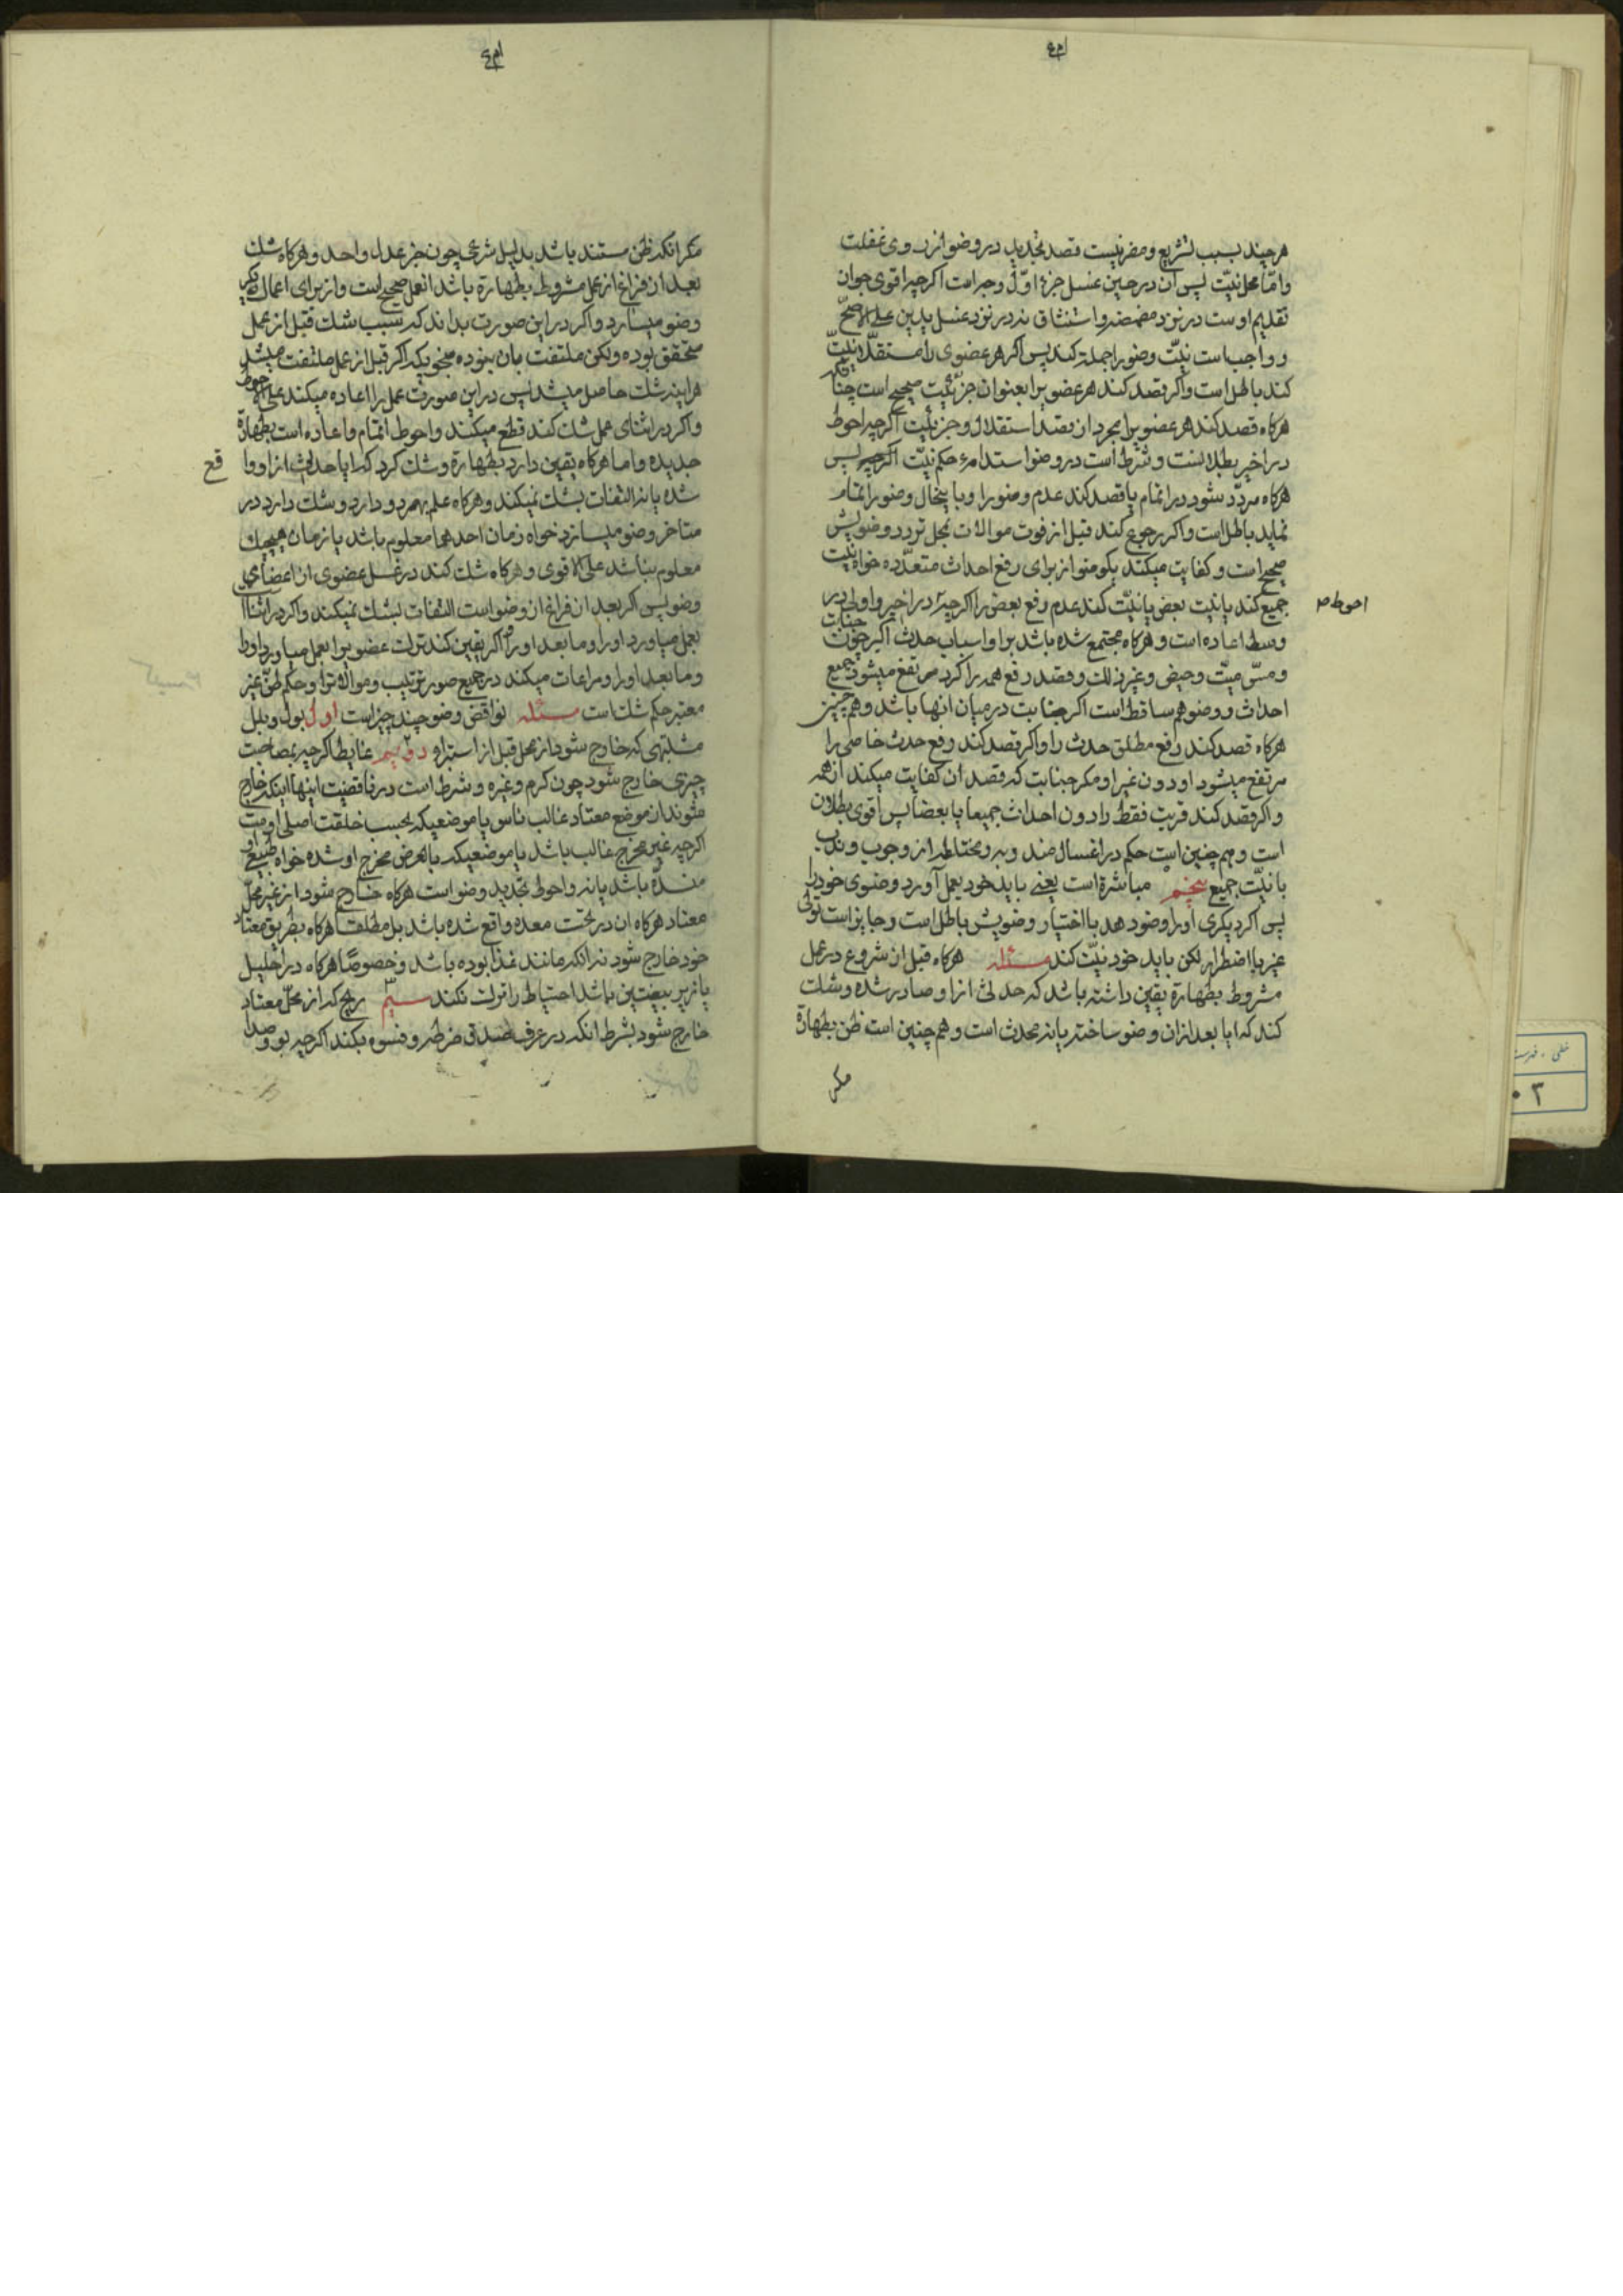 هرچند بسبب تشریع و مضر نیست قصد تجدید در وضو از روی غفلت
و امّا محل نیّت پس آن در حین غسل جزء اوّل وجه است اکرچه اقوی جواز
تقدیم اوست در نزد مضمضه و استنشاق نه در نزد غسل یدین علی الاصحّ
و واجب است نیّت وضو را جملة کند پس اکر هر عضوی را مستقلّا نیّت
کند باطل است و اکر قصد کند هر عضویرا بعنوان جزئیّت صحیح است چنانکه
هرکاه قصد کند هر عضویرا مجرد از قصد استقلال و جزئیّت اکرچه احوط
در اخیر بطلانست و شرط است در وضو استدامهٔ حکم نیّت اکرچه پس
هرکاه مردّد شود در اتمام یا قصد کند عدم وضو را و با ینحال وضو را تمام
نماید باطل است و اکر رجوع کند قبل از فوت موالات بمحل تردد وضویش
صحیح است و کفایت میکند یکوضو از برای رفع احداث متعدّده خواه نیّت
جمیع کند یا نیّت بعض یا نیّت کند عدم رفع بعض را اکرچه در اخیر و اولی در
احوط ص
وسط اعاده است و هرکاه مجتمع شده باشد بر او اسباب حدث اکبر چون جنابت
و مسّ میّت و حیض و غیر ذلك و قصد رفع همه را کرد مرتفع میشود جمیع
احداث و وضو هم ساقط است اکر جنابت در میان انها باشد و هم چنین
هرکاه قصد کند رفع مطلق حدث را و اکر قصد کند رفع حدث خاصی را
مرتفع میشود او دون غیر او مکر جنابت که قصد ان کفایت میکند از همه
و اکر قصد کند قربت فقط را دون احداث جمیعا یا بعضا پس اقوی بطلان
است و هم چنین است حکم در اغسال مندوبه و مختلطه از وجوب و ندب
با نیّت جمیع پنجم مباشرة است یعنے باید خود بعمل آورد وضوی خود را
پس اکر دیکری او را وضو دهد با اختیار وضویش باطل است و جایز است تولی
غیر با اضطرار لکن باید خود نیّت کند مسئله هرکاه قبل از شروع در عمل
مشروط بطهارة یقین داشته باشد که حدثی از او صادر شده و شك
کند که ایا بعد از ان وضو ساخته یا نه محدث است و هم چنین است ظن بطهارة
مکر
مکر انکه ظن مستند باشد بدلیل شرعی چون خبر عدل واحد و هرکاه شك
بعد از فراغ از عمل مشروط بطهارة باشد انعمل صحیح است و از برای اعمال دیکر
وضو میسازد و اکر در این صورت بداند که سبب شك قبل از عمل
متحقق بوده ولکن ملتفت بان نبوده بنحویکه اکر قبل از عمل ملتفت میشد
هراینه شك حاصل میشد پس در این صورت عمل را اعاده میکند علی الاحوط
و اکر در اثنای عمل شك کند قطع میکند و احوط اتمام و اعاده است بطهارة
جدیده و اما هرکاه یقین دارد بطهارة و شك کرد که ایا حدثی از او واقع
شده یا نه التفات بشك نمیکند و هرکاه علم بهر دو دارد و شك دارد در
متاخر وضو میسازد خواه زمان احدهما معلوم باشد یا زمان هیچیك
معلوم نباشد علی الاقوی و هرکاه شك کند در غسل عضوی از اعضای
وضو پس اکر بعد از فراغ از وضو است التفات بشك نمیکند و اکر در اثنا
بعمل میاورد او را و ما بعد او را و اکر یقین کند ترك عضویرا بعمل میاورد او را
و ما بعد او را و مراعات میکند در جمیع صور ترتیب و موالاة را و حکم ظنّ غیر
معتبر حکم شك است مسئله نواقض وضو چند چیز است اول بول و بلل
مشتبهی که خارج شود از محل قبل از استبراء دوّیم غایط اکرچه بمصاحبت
چیزی خارج شود چون کرم و غیره و شرط است در ناقضیت اینها اینکه خارج
شوند از موضع معتاد غالب ناس یا موضعیکه بحسب خلقت اصلی اوست
اکرچه غیر مخرج غالب باشد یا موضعیکه بالعرض مخرج او شده خواه طبیعی او
منسدّ باشد یا نه و احوط تجدید وضو است هرکاه خارج شود از غیر محلّ
معتاد هرکاه ان در تحت معده واقع شده باشد بل مطلقا هرکاه بطریق معتاد
خود خارج شود نه انکه مانند غذا بوده باشد و خصوصًا هرکاه در احلیل
یا زیر بیضتین باشد احتیاط را ترك نکند سیّم ریح که از محلّ معتاد
خارج شود بشرط انکه در عرف صدق ضرطه و فسوه بکند اکرچه بو و صدا
خطی ـ فهرست
۰۳